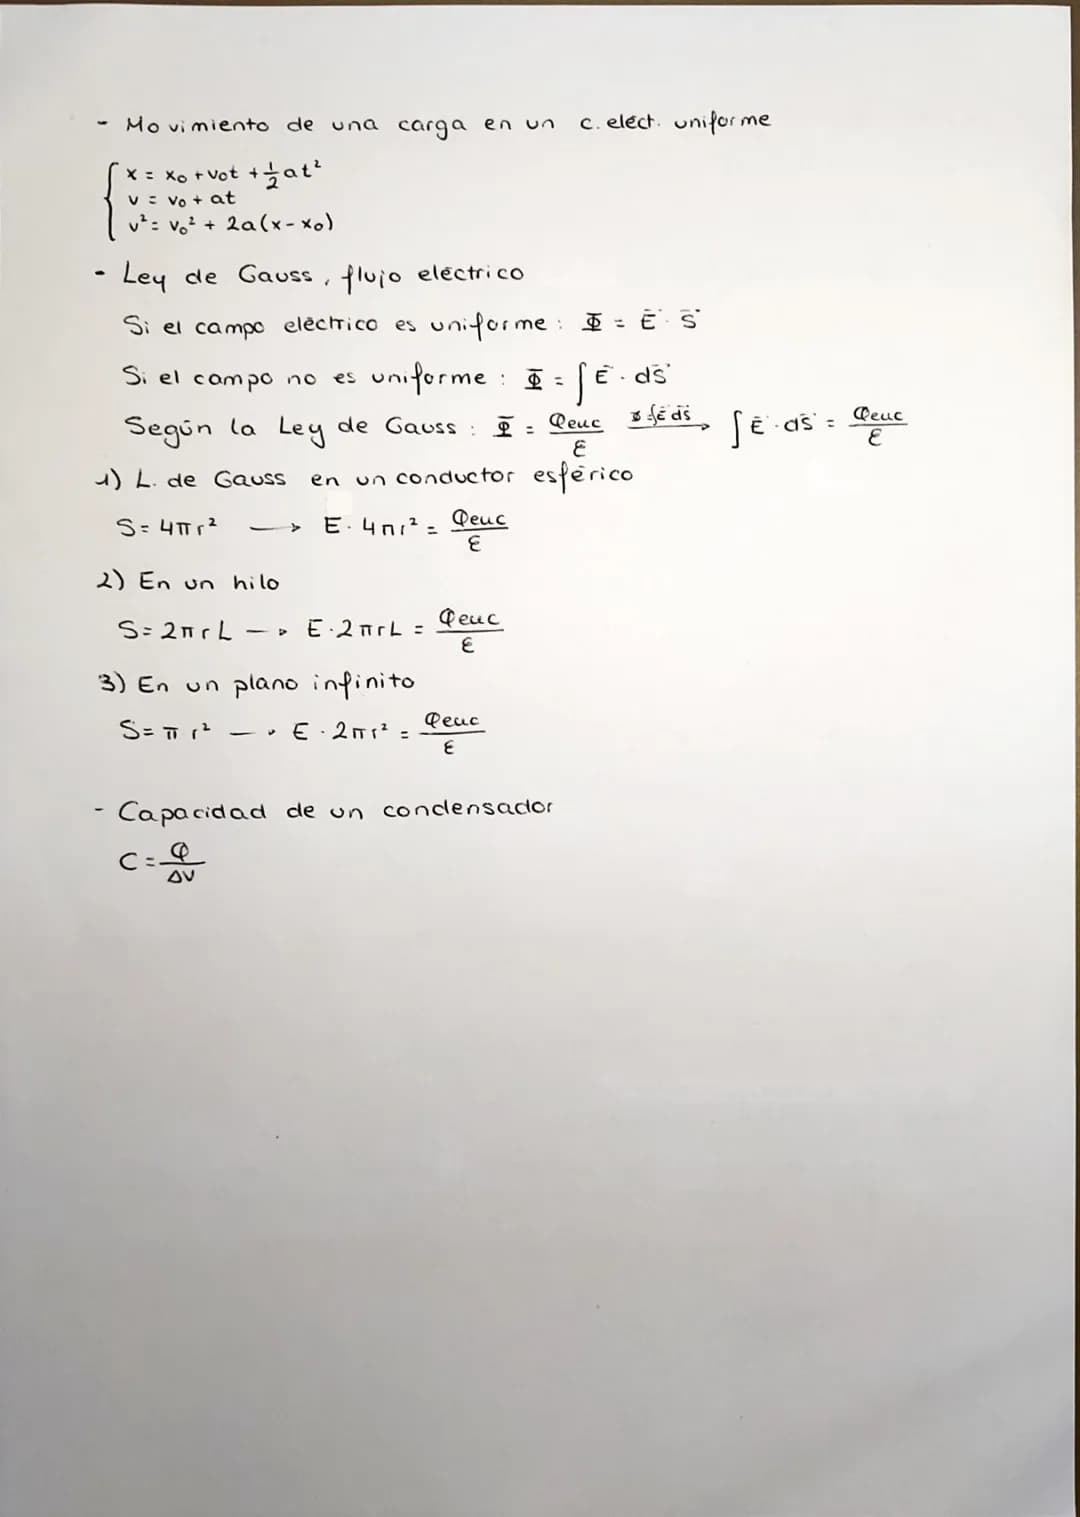 - Movimiento de una carga en un c. eléct. uniforme
x = x₀ + v₀t + 1/2 at²
v = v₀ + at
v² = v₀² + 2a(x - x₀)
- Ley de Gauss, flujo eléctrico
Si el campo eléctrico es uniforme: Φ = E⃗ · S⃗
Si el campo no es uniforme: Φ = ∫E⃗ · dS⃗
Según la Ley de Gauss: Φ = Qenc/ε Φ=∫E⃗ dS⃗ → ∫E⃗ · dS⃗ = Qenc/ε
1) L. de Gauss en un conductor esférico
S = 4πr² → E · 4πr² = Qenc/ε
2) En un hilo
S = 2πrL → E · 2πrL = Qenc/ε
3) En un plano infinito
S = πr² → E · 2πr² = Qenc/ε
- Capacidad de un condensador
C = Q/ΔV